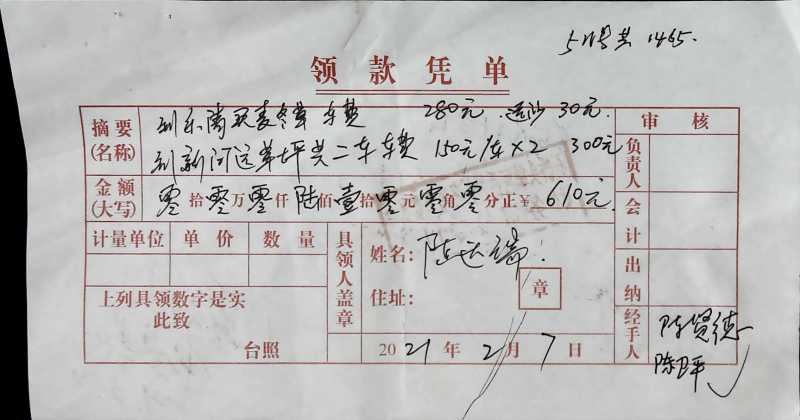 5号共1465.
领款凭单
摘要(名称) 到乐陶取麦冬草 车费 280元 运沙 30元
到新河运草坪共二车 车费 150元/车×2 300元
审核
负责人
金额(大写) 零拾零万零仟陆佰壹拾零元零角零分正¥ 610元
会计
计量单位 单价 数量
具领人盖章
姓名:
住址:
章
出纳
上列具领数字是实
此致
台照
2021年2月7日
经手人 陈贤德
陈卫平